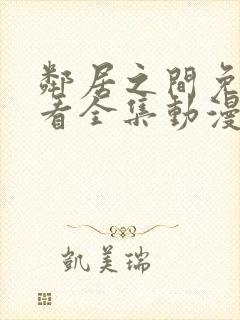 鄰居之間免
看全集動漫
凱美瑞